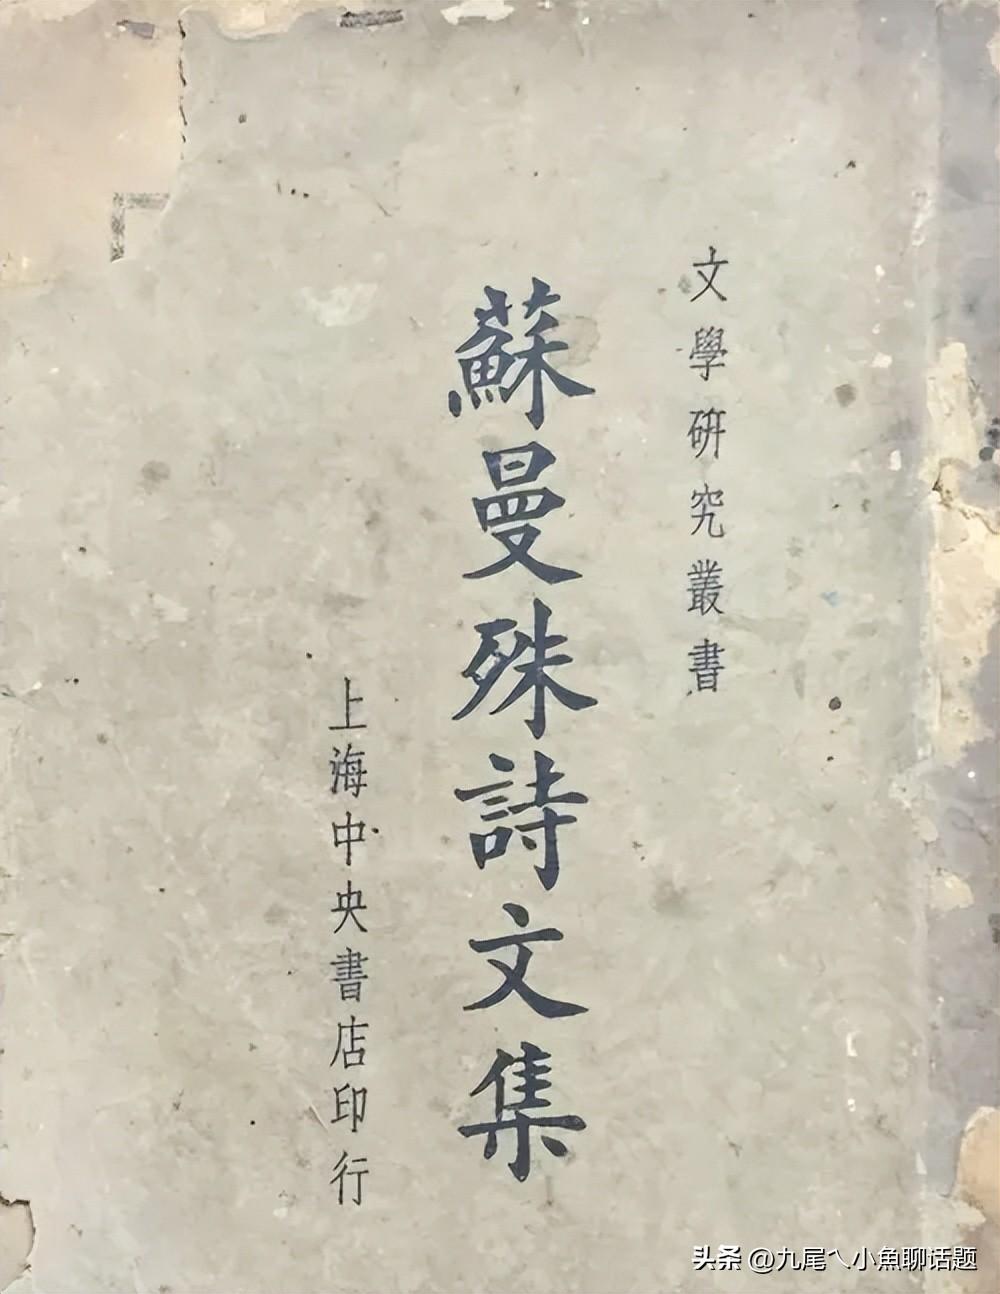 文學研究叢書
蘇曼殊詩文集
上海中央書店印行
头条 @九尾乀小魚聊话题